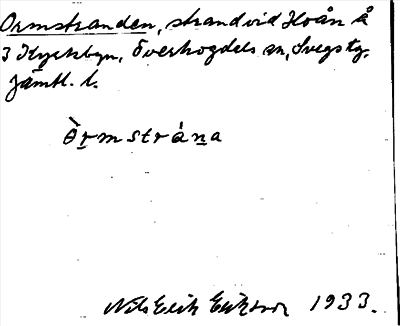 Ormstranden, strand vid Hoån å
3 Kyrkbyn, Överhogdals sn, Svegs tg.
Jämtl. l.
Òrmstrána
Nils Erik Eriksson 1933.